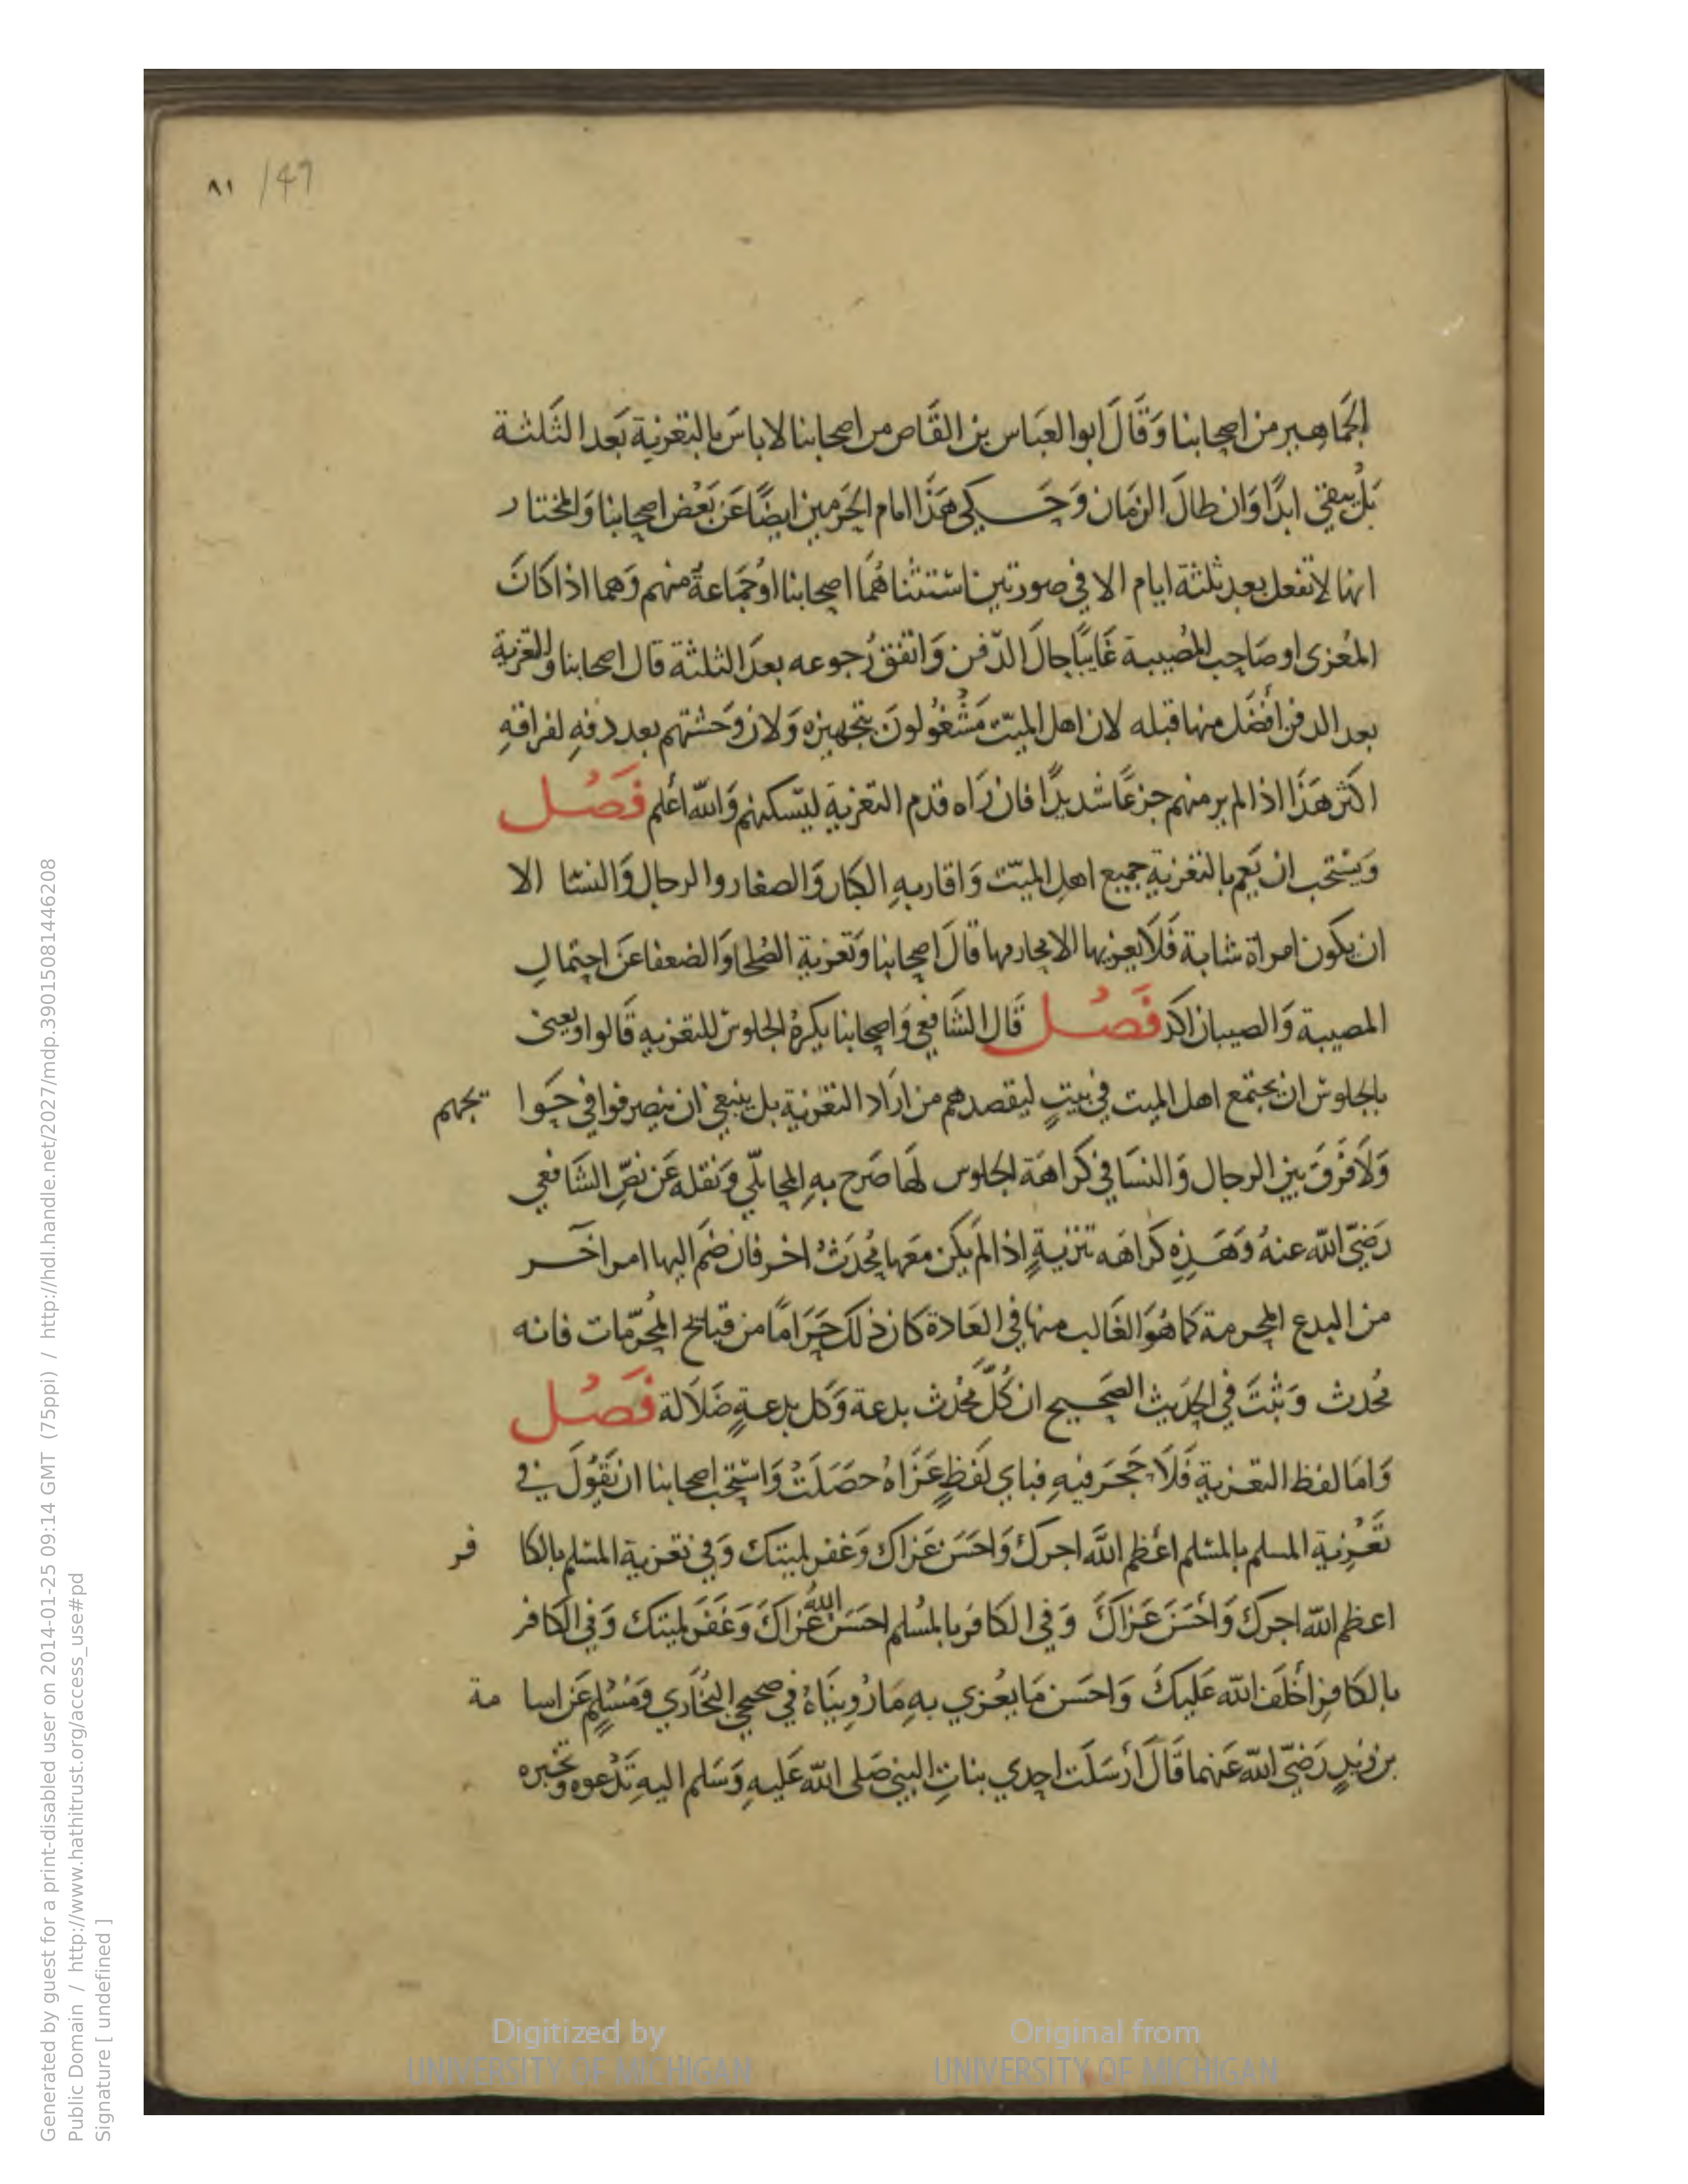 ٨١ /49
الجَماهير من اصحابنا وَقَالَ ابو العبَاس بن القَاص من اصحابنا لاباسَ بالتعَزية بَعد الثَلثة
بَل يبقي ابدًا وَان طالَ الزمَان وَحَكي هَذَا امام الحَرمين ايضًا عَن بَعْض اصحابنا وَالمختار
انها لاتفعل بعد ثلثة ايام الا في صورتين استثناهُمَا اصحابنا اوجَمَاعة منهم وَهما اذا كانَ
المُعزى او صَاحب المُصيبة غَايبًا حالَ الدّفن وَاتفق رُجوعه بعدَ الثلثة قال اصحابنا والتعزية
بعد الدفن افضَل منها قبله لان اهل الميّت مَشْغُولونَ بتجهيزه وَلان وَحشتهم بعد دفنهِ لفراقهِ
اكثر هَذَا اذا لم ير منهم جزعًا شديدًا فان رَاه قدم التعزية ليسكنهم وَاللّه اعلم فَصُل
وَيستحَب ان يَعم بالتعَزية جميع اهل الميّت وَاقاربهِ الكبار وَالصغار والرجال وَالنسَا الا
ان يكون امراة شابة فَلَا يعزيها الا محارمها قالَ اصحابنا وَتعزية الصُلحا وَالضعفا عَن احتمال
المصيبة وَالصبيان اكد فَصُل قَال الشَافعي وَاصحابنا يكرهُ الجلوسُ للتعَزيه قَالوا ويعني
بالجلوس ان يجتمع اهل الميت في بيتٍ ليقصدهم من ارَاد التعَزية بل ينبغي ان ينصرفوا في حَوايجهم
وَلَا فرقَ بين الرجال وَالنسَا في كرَاهَة الجلوس لَها صَرح بهِ المحاملّي وَنقله عَن نصِّ الشَافعي
رَضيّ اللّه عنهُ وَهَذِهِ كرَاهَه تنزيةٍ اذا لم يكن معَها مُحدَثٌ اخر فان ضمّ اليها امر اخَر
من البدع المحرمة كما هُوَ الغَالب منها في العَادة كان ذلك حَرَامًا من قبائح المحَرّمات فانه
مُحدث وَثبتَ في الحدَيث الصَحيح ان كُلّ محُدث بدعة وَكل بدعةٍ ضَلَالة فَصُل
وَامَا لفظ التعزية فَلَا حَجرَ فيهِ فباي لفَظٍ عَزَاهُ حصَلَتْ وَاستحَب اصحابنا ان يَقُولَ في
تَعْزِية المسلم بالمسلم اعَظم اللَّه اجركَ وَاحَسَن عَزاك وَغفر لميتك وَفي تعزية المسلم بالكافر
اعظم اللّه اجركَ وَاحْسَنَ عَزاكَ وَفي الكافر بالمسُلم احسَنَ اللهُ عَزاكَ وَغَفَر لميتك وَفي الكافر
بالكَافِر اخَلَف اللّه عَليكَ وَاحسَن مَا يعُزي بهِ مَا رُوِينَاهُ في صحيحي البخَاري وَمُسْلِمٍ عَن اسامة
بن زيدٍ رَضيَ اللّه عَنهما قَالَ ارْسَلَت احدي بناتِ النبي صَلى اللّه عَليهِ وَسَلم اليهِ تَدْعوه وتخبره
Generated by guest for a print-disabled user on 2014-01-25 09:14 GMT (75ppi) / http://hdl.handle.net/2027/mdp.39015081446208
Public Domain / http://www.hathitrust.org/access_use#pd
Signature [ undefined ]
Digitized by
UNIVERSITY OF MICHIGAN
Original from
UNIVERSITY OF MICHIGAN